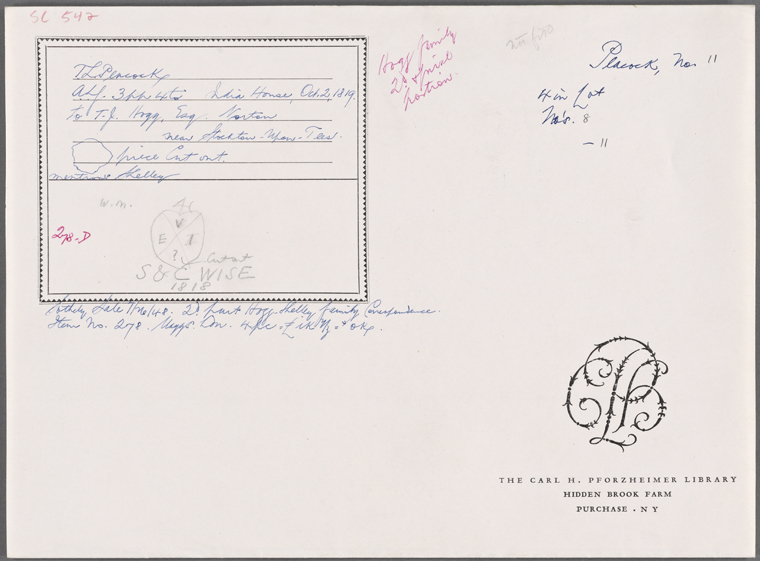 SC 542
T L Peacock
A.L.S. 3pp 4to India House, Oct. 2, 1819.
to T. J. Hogg, Esq. Norton
near Stockton-Upon-Tees.
piece Cut out.
mentions Shelley
W.M.
278-D
V
E I
?
Cut out
S & C WISE
1818
Sotheby Sale 48. 2d part Hogg-Shelley family Correspondence.
Item No. 278. Maggs Lon.
Hogg family
2d
portion.
Peacock, No. 11
4 in Lot
No's. 8
— 11
THE CARL H. PFORZHEIMER LIBRARY
HIDDEN BROOK FARM
PURCHASE · N Y